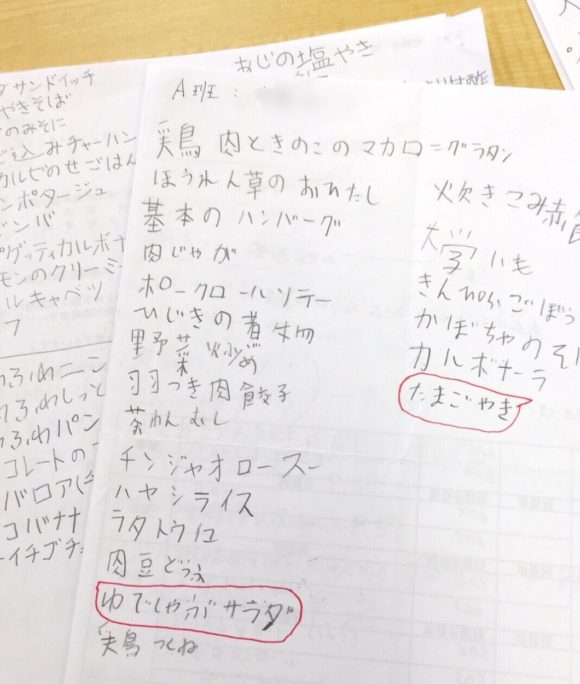 あじの塩やき
ダサンドイッチ
やきそば
のみそに
込みチャーハン
カルビのせごはん
ンポタージュ
ゲッティカルボナ
モンのクリーミー
ルキャベツ
フ
ふわ
ふわしっと
ふわパン
コレートの
バロア
コバナナ
ーイチゴチ
A班:
鶏肉ときのこのマカロニグラタン
ほうれん草のおひたし
基本のハンバーグ
肉じゃが
ポークロールソテー
ひじきの煮物
野菜炒め
羽つき肉餃子
茶わんむし
チンジャオロースー
ハヤシライス
ラタトゥイユ
肉豆どうふ
ゆでじゃがサラダ
鶏つくね
炊きこみ赤飯
大学いも
きんぴらごぼう
かぼちゃのそ
カルボナーラ
たまごやき